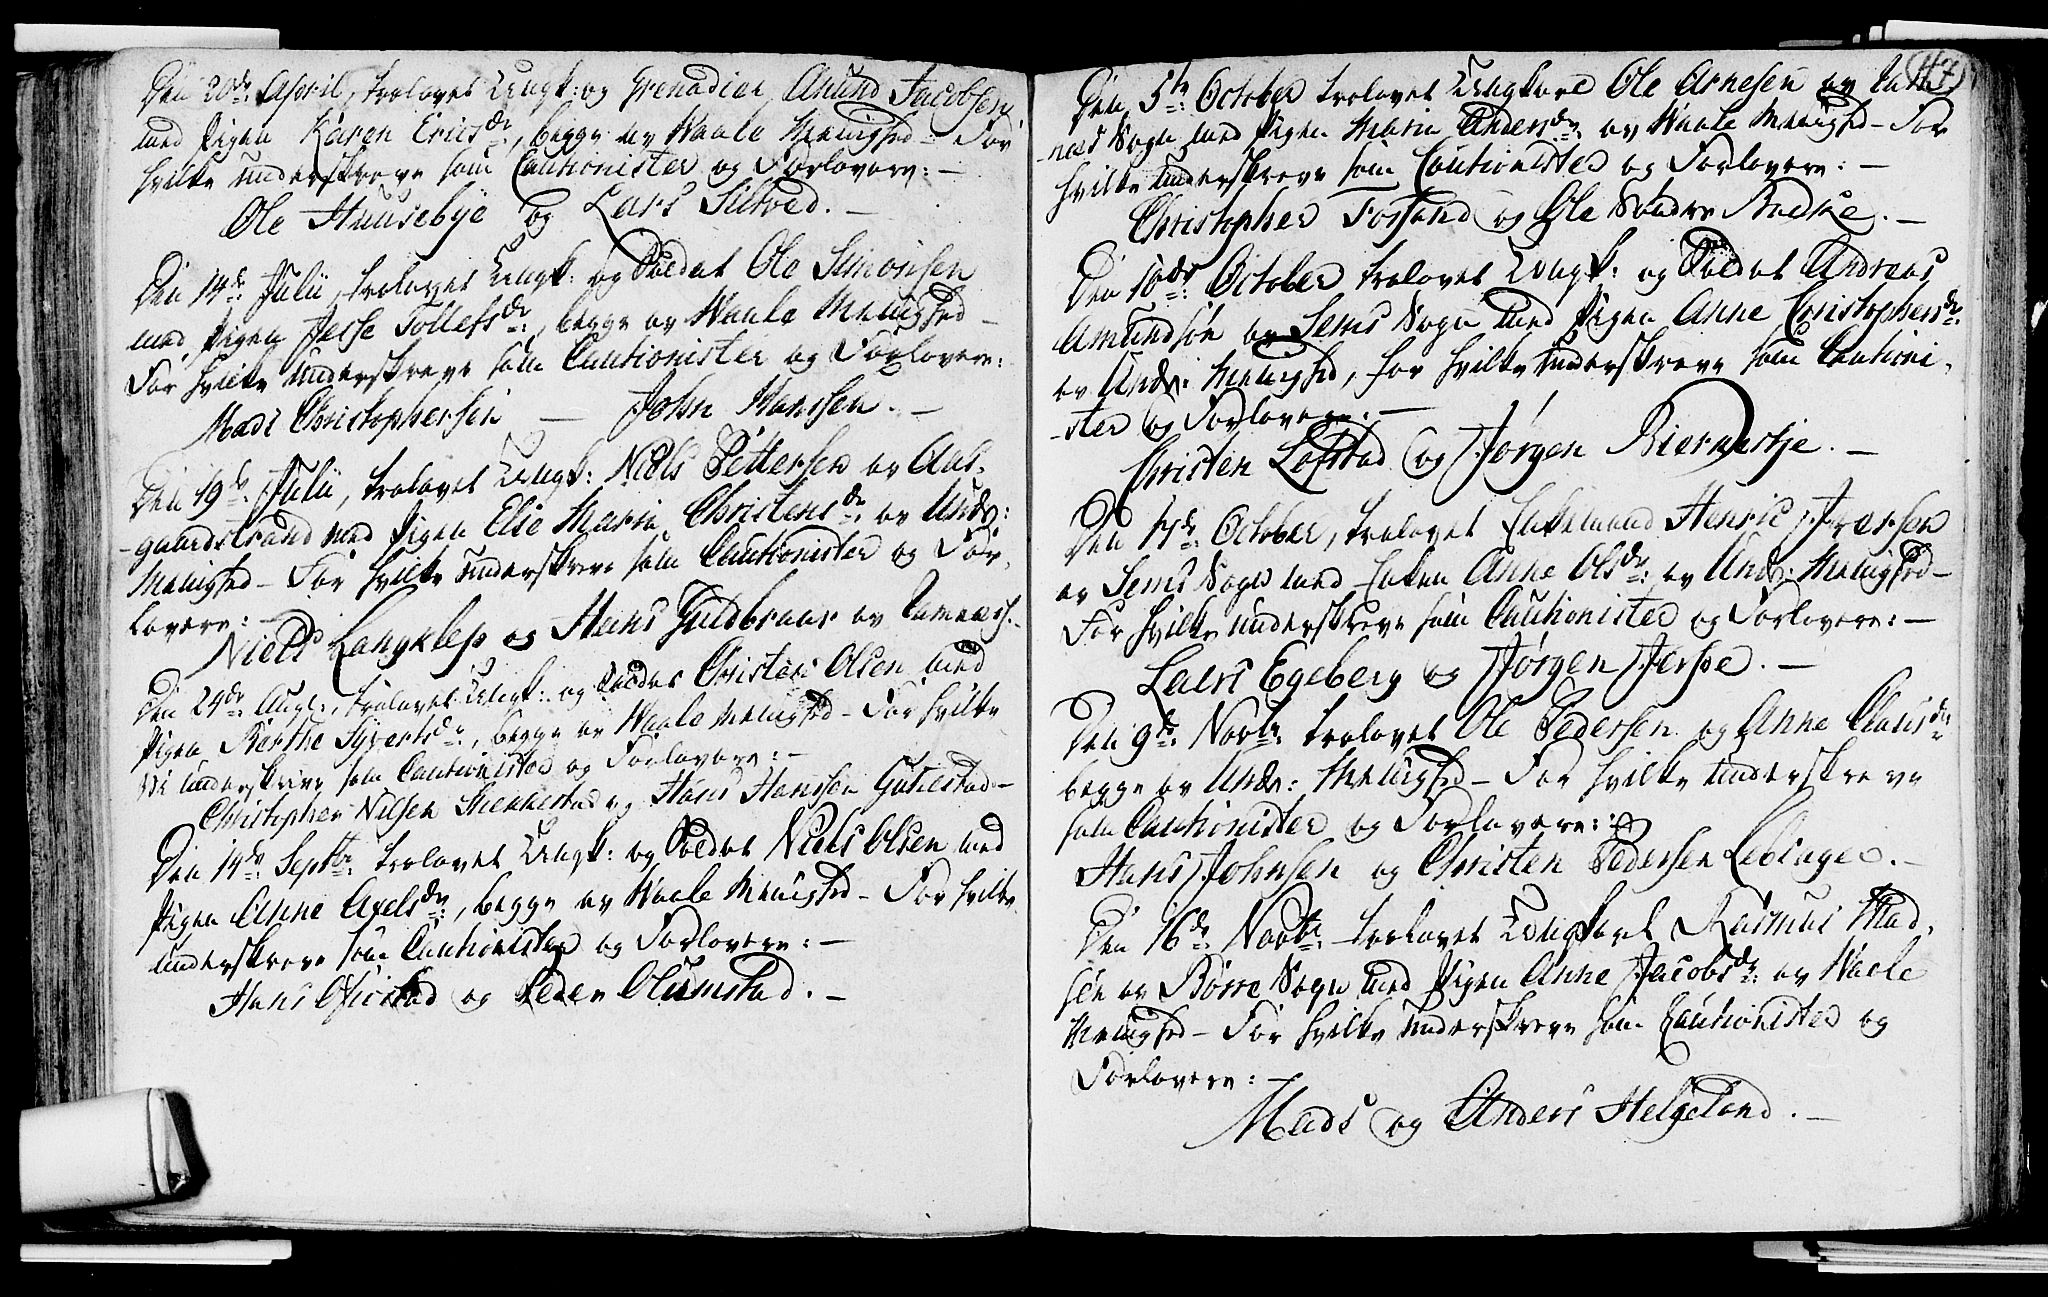 Den 20de: April, trolovet Ungk: og Grenadier Anund Jacobsen
med Pigen Karen Ericsdr:, begge av Waale Menighed – For
hvilke underskreve som Cautionister og Forlovere: –
Ole Huusebye og Lars Siltved. –
Den 14de: Julii, trolovet Ungk: og Soldat Ole Simonsen
med Pigen Jesse Tollefsdr:, begge av Waale Menighed –
For hvilke underskreve som Cautionister og Forlovere:
Mads Christophersen – John Hanssen. –
Den 19de: Julii, trolovet Ungk: Niels Pettersen av Aas-
-gaardstrand med Pigen Else Maria Christensdr: av Undr:
Menighed – For hvilke underskreve som Cautionister og For-
lovere: –
Niels Langklep og Hans Guldbrans av
Den 24de: Aug:, trolovet Ungk: og Soldat Christen Olsen med
Pigen Berthe Syvertsdr:, begge av Waale Menighed – For hvilke
underskreve som Cautionister og Forlovere: –
Christopher Nilsen og Hans Hanssen –
Den 14de: Septbr: trolovet Ungk: og Soldat Niels Olsen med
Pigen Anne Axelsdr:, begge av Waale Menighed – For hvilke
underskreve som Cautionister og Forlovere: –
Hans og Peder Olumstad. –
47
Den 5te: October trolovet Ungkarl Ole Arnesen av
-næs Sogn med Pigen Maria Andersdr: av Waale Menighed – For
hvilke underskreve som Cautionister og Forlovere: –
Christopher Fossand og Ole Søndre Backe. –
Den 10de: October trolovet Ungk: og Soldat Andreas
Amundsøn av Sems Sogn med Pigen Anne Christophersdr:
av Undr: Menighed, for hvilke underskreve som Cautioni-
-ster og Forlovere: –
Christen Lofstad og Jørgen Biernerøje. –
Den 17de: October, trolovet Enkemand Henric Iversen
av Sems Sogn med Enken Anne Olsdr: av Undr: Menighed –
For hvilke underskreve som Cautionister og Forlovere: –
Laers Egeberg og Jørgen Jersøe. –
Den 9de: Novbr: trolovet Ole Pedersen og Anne Clausdr:
begge av Undr: Menighed – For hvilke underskreve
som Cautionister og Forlovere:
Hans Johnsen og Christen Pedersen. –
Den 16de: Novbr: trolovet Ungkarl Rasmus Mad-
sen av Borre Sogn med Pigen Anne Jacobsdr: av Waale
Menighed – For hvilke underskreve som Cautionister og
Forlovere: –
Mads og Anders Helgeland. –